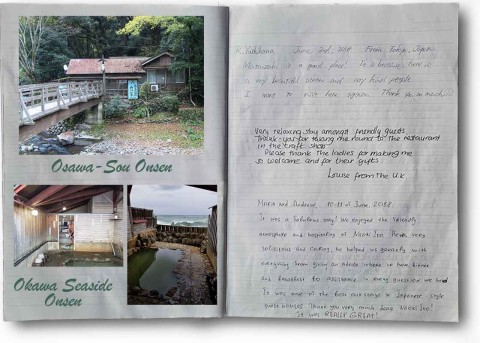 Osawa-Sou Onsen
Okawa Seaside
Onsen
June 2nd, From Tokyo, Japan
is a good place. It is because here is
a very beautiful ocean and very kind people.
I want to visit here again. Thank you so much
Very relaxing stay amongst friendly guests.
Thank-you for taking me round to the restaurant
in the craft shop.
Please thank the ladies for making me
so welcome and for their gifts.
Louise from the U.K
Maria and Andreas, 10-11 of June, 2018.
It was a fabulous stay! We enjoyed the friendly
atmosphere and of Inn. very
and caring, he helped us generally with
everything from giving an advice where to have dinner
and breakfast to assistance in every question we had
It was one of the first in Japanese style
guest houses. Thank you very much dear Inn!
It was REALLY GREAT!